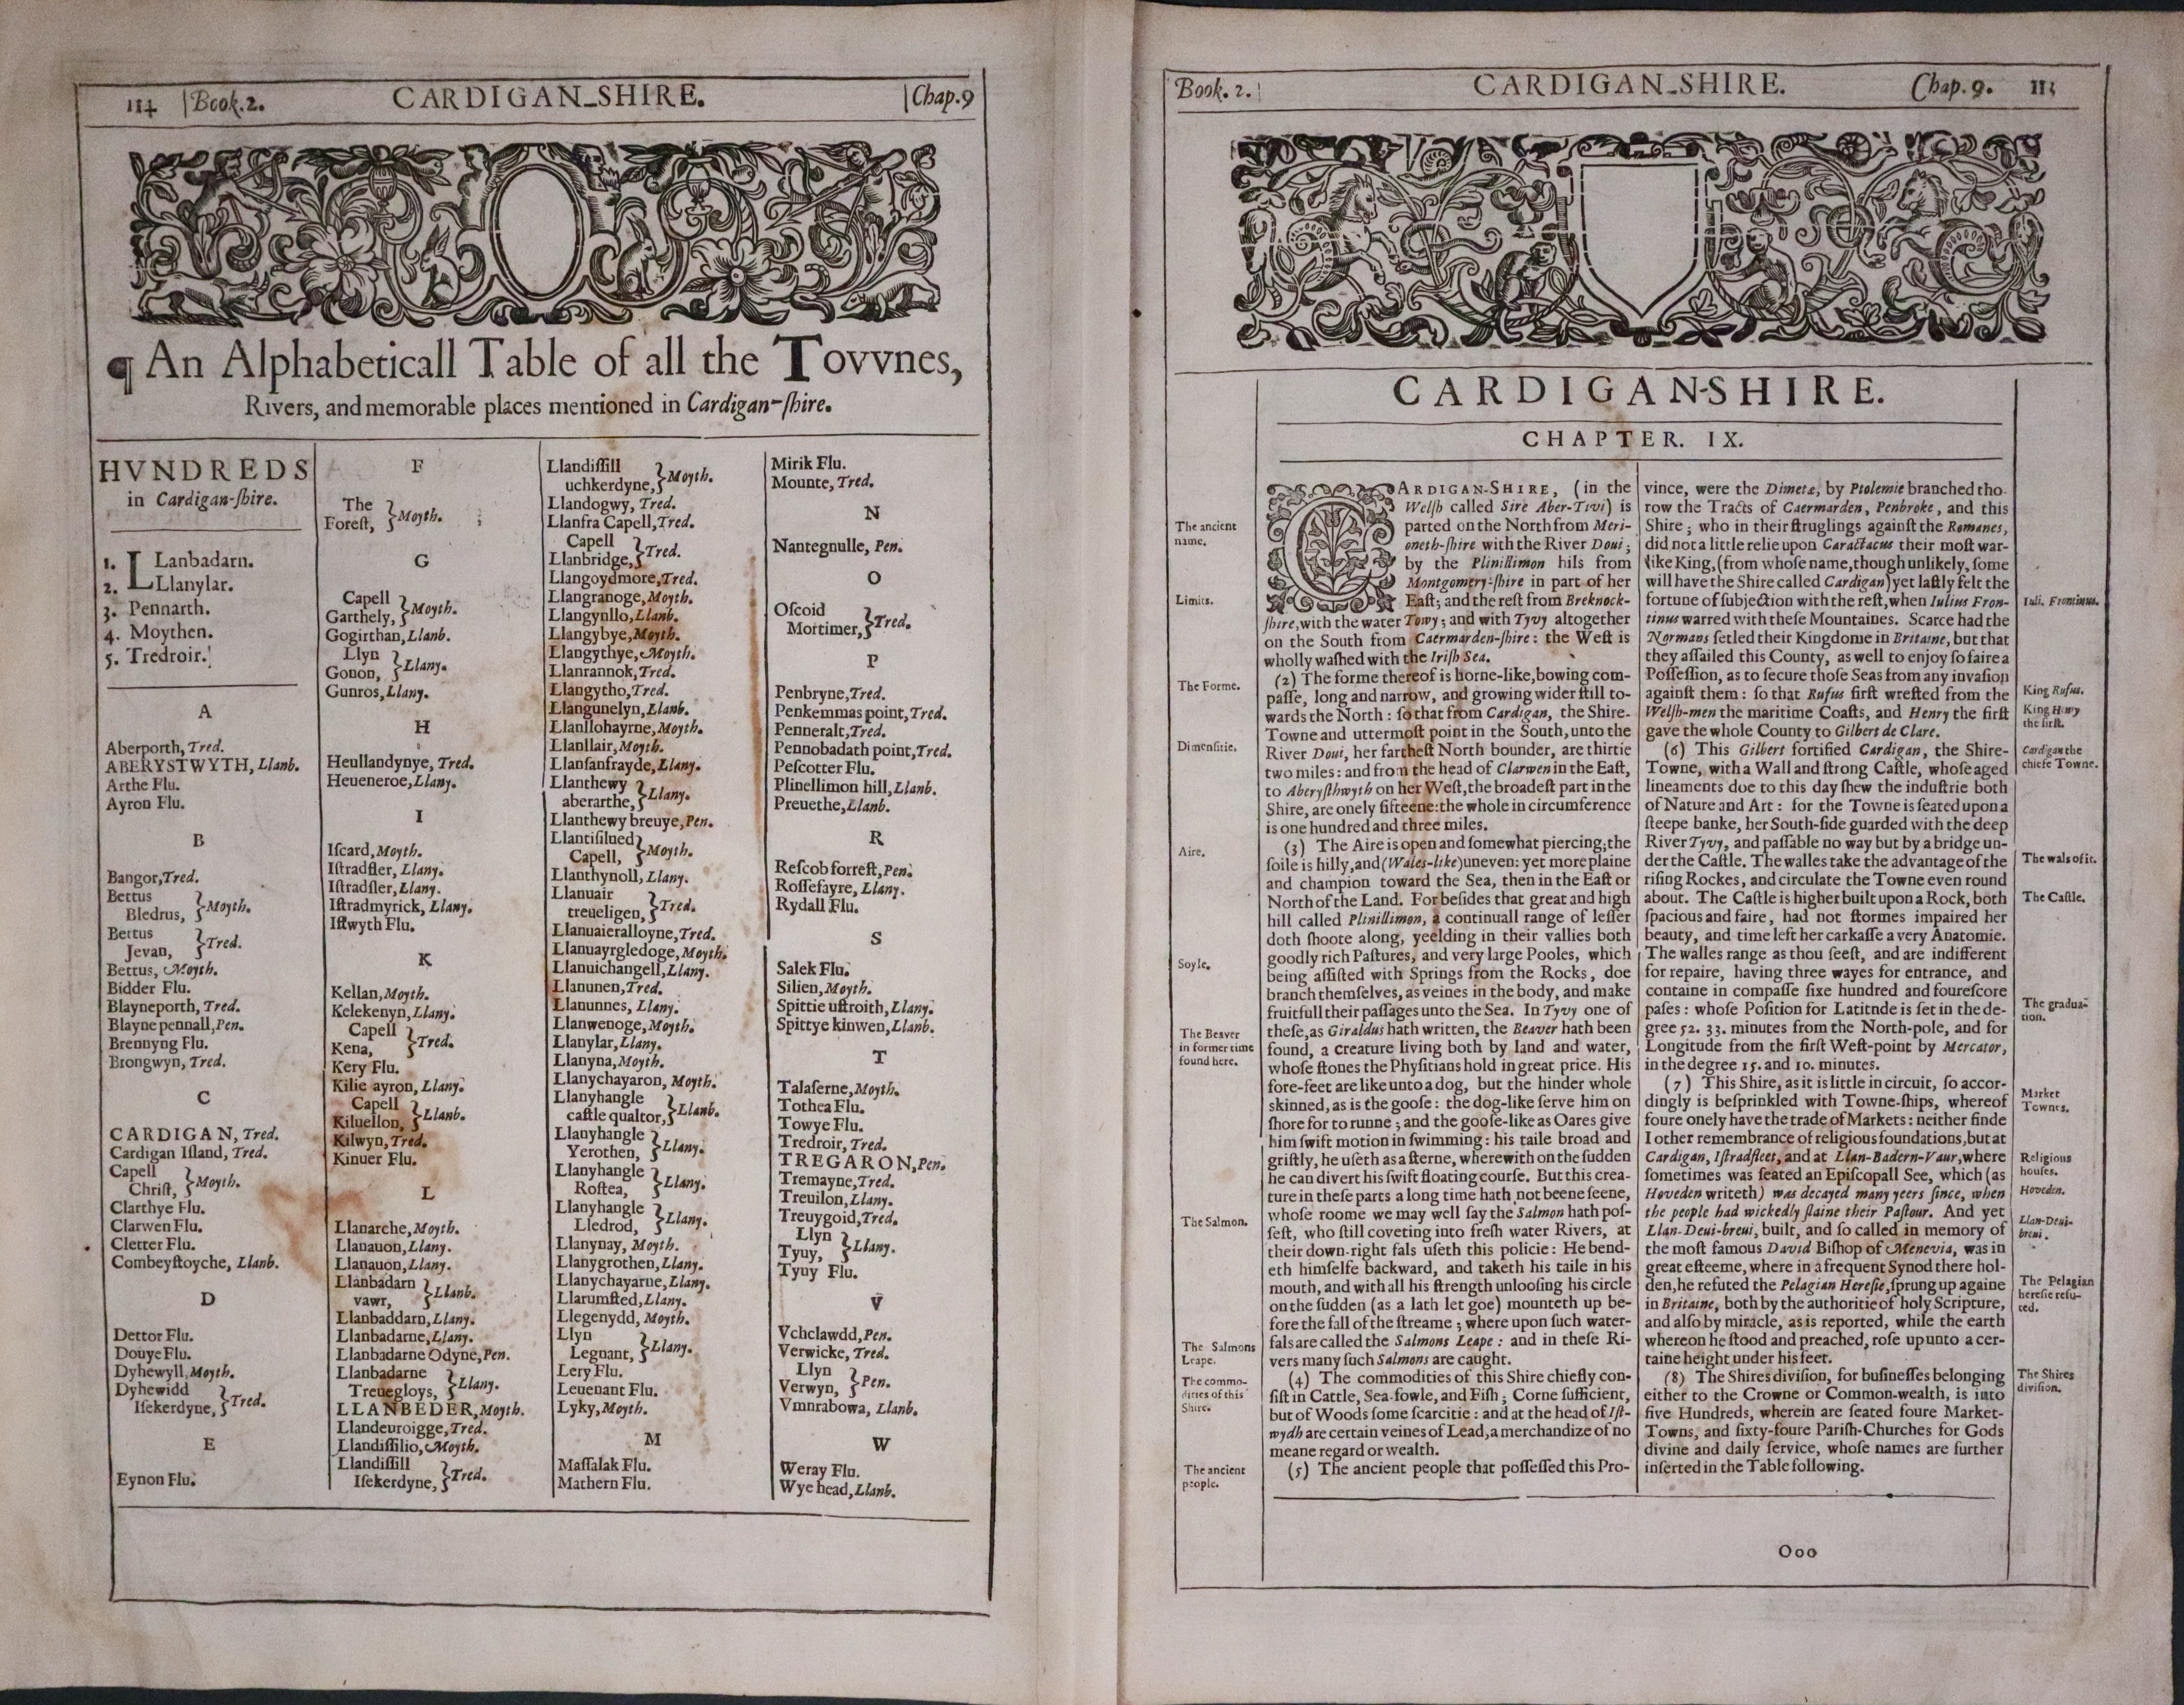 114 Book. 2. CARDIGAN-SHIRE. Chap. 9
¶ An Alphabeticall Table of all the Tovvnes,
Rivers, and memorable places mentioned in Cardigan-ſhire.
HVNDREDS
in Cardigan-ſhire.
1. LLanbadarn.
2. LLlanylar.
3. Pennarth.
4. Moythen.
5. Tredroir.
A
Aberporth, Tred.
ABERYSTWYTH, Llanb.
Arthe Flu.
Ayron Flu.
B
Bangor, Tred.
Bettus
Bledrus, } Moyth.
Bettus
Jevan, } Tred.
Bettus, Moyth.
Bidder Flu.
Blayneporth, Tred.
Blayne pennall, Pen.
Brennyng Flu.
Brongwyn, Tred.
C
CARDIGAN, Tred.
Cardigan Iſland, Tred.
Capell
Chriſt, } Moyth.
Clarthye Flu.
Clarwen Flu.
Cletter Flu.
Combeyſtoyche, Llanb.
D
Dettor Flu.
Douye Flu.
Dyhewyll, Moyth.
Dyhewidd
Iſekerdyne, } Tred.
E
Eynon Flu.
F
The
Foreſt, } Moyth.
G
Capell
Garthely, } Moyth.
Gogirthan, Llanb.
Llyn
Gonon, } Llany.
Gunros, Llany.
H
Heullandynye, Tred.
Heueneroe, Llany.
I
Iſcard, Moyth.
Iſtradfler, Llany.
Iſtradfler, Llany.
Iſtradmyrick, Llany.
Iſtwyth Flu.
K
Kellan, Moyth.
Kelekenyn, Llany.
Capell
Kena, } Tred.
Kery Flu.
Kilie ayron, Llany.
Capell
Kiluellon, } Llanb.
Kilwyn, Tred.
Kinuer Flu.
L
Llanarche, Moyth.
Llanauon, Llany.
Llanauon, Llany.
Llanbadarn
vawr, } Llanb.
Llanbaddarn, Llany.
Llanbadarne, Llany.
Llanbadarne Odyne, Pen.
Llanbadarne
Treuegloys, } Llany.
LLANBEDER, Moyth.
Llandeuroigge, Tred.
Llandiſſilio, Moyth.
Llandiſſill
Iſekerdyne, } Tred.
Llandiſſill
uchkerdyne, } Moyth.
Llandogwy, Tred.
Llanfra Capell, Tred.
Capell
Llanbridge, } Tred.
Llangoydmore, Tred.
Llangranoge, Moyth.
Llangynllo, Llanb.
Llangybye, Moyth.
Llangythye, Moyth.
Llanrannok, Tred.
Llangytho, Tred.
Llangunelyn, Llanb.
Llanllohayrne, Moyth.
Llanllair, Moyth.
Llanſanfrayde, Llany.
Llanthewy
aberarthe, } Llany.
Llanthewy breuye, Pen.
Llantiſilued
Capell, } Moyth.
Llanthynoll, Llany.
Llanuair
treueligen, } Tred.
Llanuaieralloyne, Tred.
Llanuayrgledoge, Moyth.
Llanuichangell, Llany.
Llanunen, Tred.
Llanunnes, Llany.
Llanwenoge, Moyth.
Llanylar, Llany.
Llanyna, Moyth.
Llanychayaron, Moyth.
Llanyhangle
caſtle qualtor, } Llanb.
Llanyhangle
Yerothen, } Llany.
Llanyhangle
Roſtea, } Llany.
Llanyhangle
Lledrod, } Llany.
Llanynay, Moyth.
Llanygrothen, Llany.
Llanychayarue, Llany.
Llarumſted, Llany.
Llegenydd, Moyth.
Llyn
Legnant, } Llany.
Lery Flu.
Leuenant Flu.
Lyky, Moyth.
M
Maſſalak Flu.
Mathern Flu.
Mirik Flu.
Mounte, Tred.
N
Nantegnulle, Pen.
O
Oſcoid
Mortimer, } Tred.
P
Penbryne, Tred.
Penkemmas point, Tred.
Penneralt, Tred.
Pennobadath point, Tred.
Peſcotter Flu.
Plinellimon hill, Llanb.
Preuethe, Llanb.
R
Reſcob forreſt, Pen.
Roſſefayre, Llany.
Rydall Flu.
S
Salek Flu.
Silien, Moyth.
Spittie uſtroith, Llany.
Spittye kinwen, Llanb.
T
Talaſerne, Moyth.
Tothea Flu.
Towye Flu.
Tredroir, Tred.
TREGARON, Pen.
Tremayne, Tred.
Treuilon, Llany.
Treuygoid, Tred.
Llyn
Tyuy, } Llany.
Tyuy Flu.
V
Vchclawdd, Pen.
Verwicke, Tred.
Llyn
Verwyn, } Pen.
Vmnrabowa, Llanb.
W
Weray Flu.
Wye head, Llanb.
Book. 2. CARDIGAN-SHIRE. Chap. 9. 113
CARDIGAN-SHIRE.
CHAPTER. IX.
The ancient
name.
Limits.
The Forme.
Dimenſitie.
Aire.
Soyle.
The Beaver
in former time
found here.
The Salmon.
The Salmons
Leape.
The commo-
dities of this
Shire.
The ancient
people.
CARDIGAN-SHIRE, (in the
Welſh called Sire Aber-Tivi) is
parted on the North from Meri-
oneth-ſhire with the River Doui;
by the Plinillimon hils from
Montgomery-ſhire in part of her
Eaſt; and the reſt from Breknock-
ſhire, with the water Towy; and with Tyvy altogether
on the South from Caermarden-ſhire: the Weſt is
wholly waſhed with the Iriſh Sea.
(2) The forme thereof is horne-like, bowing com-
paſſe, long and narrow, and growing wider ſtill to-
wards the North: ſo that from Cardigan, the Shire-
Towne and uttermoſt point in the South, unto the
River Doui, her fartheſt North bounder, are thirtie
two miles: and from the head of Clarwen in the Eaſt,
to Aberyſthwyth on her Weſt, the broadeſt part in the
Shire, are onely fifteene: the whole in circumference
is one hundred and three miles.
(3) The Aire is open and ſomewhat piercing; the
ſoile is hilly, and (Wales-like) uneven: yet more plaine
and champion toward the Sea, then in the Eaſt or
North of the Land. For beſides that great and high
hill called Plinillimon, a continuall range of leſſer
doth ſhoote along, yeelding in their vallies both
goodly rich Paſtures, and very large Pooles, which
being aſſiſted with Springs from the Rocks, doe
branch themſelves, as veines in the body, and make
fruitfull their paſſages unto the Sea. In Tyvy one of
theſe, as Giraldus hath written, the Beaver hath been
found, a creature living both by land and water,
whoſe ſtones the Phyſitians hold in great price. His
fore-feet are like unto a dog, but the hinder whole
skinned, as is the gooſe: the dog-like ſerve him on
ſhore for to runne; and the gooſe-like as Oares give
him ſwift motion in ſwimming: his taile broad and
griſtly, he uſeth as a ſterne, wherewith on the ſudden
he can divert his ſwift floating courſe. But this crea-
ture in theſe parts a long time hath not beene ſeene,
whoſe roome we may well ſay the Salmon hath poſ-
ſeſt, who ſtill coveting into freſh water Rivers, at
their down-right fals uſeth this policie: He bend-
eth himſelfe backward, and taketh his taile in his
mouth, and with all his ſtrength unlooſing his circle
on the ſudden (as a lath let goe) mounteth up be-
fore the fall of the ſtreame; where upon ſuch water-
fals are called the Salmons Leape: and in theſe Ri-
vers many ſuch Salmons are caught.
(4) The commodities of this Shire chiefly con-
ſiſt in Cattle, Sea-fowle, and Fiſh; Corne ſufficient,
but of Woods ſome ſcarcitie: and at the head of Iſt-
wydh are certain veines of Lead, a merchandize of no
meane regard or wealth.
(5) The ancient people that poſſeſſed this Pro-
vince, were the Dimetæ, by Ptolemie branched tho-
row the Tracts of Caermarden, Penbroke, and this
Shire; who in their ſtruglings againſt the Romanes,
did not a little relie upon Caractacus their moſt war-
like King, (from whoſe name, though unlikely, ſome
will have the Shire called Cardigan) yet laſtly felt the
fortune of ſubjection with the reſt, when Iulius Fron-
tinus warred with theſe Mountaines. Scarce had the
Normans ſetled their Kingdome in Britaine, but that
they aſſailed this County, as well to enjoy ſo faire a
Poſſeſſion, as to ſecure thoſe Seas from any invaſion
againſt them: ſo that Rufus firſt wreſted from the
Welſh-men the maritime Coaſts, and Henry the firſt
gave the whole County to Gilbert de Clare.
(6) This Gilbert fortified Cardigan, the Shire-
Towne, with a Wall and ſtrong Caſtle, whoſe aged
lineaments doe to this day ſhew the induſtrie both
of Nature and Art: for the Towne is ſeated upon a
ſteepe banke, her South-ſide guarded with the deep
River Tyvy, and paſſable no way but by a bridge un-
der the Caſtle. The walles take the advantage of the
riſing Rockes, and circulate the Towne even round
about. The Caſtle is higher built upon a Rock, both
ſpacious and faire, had not ſtormes impaired her
beauty, and time left her carkaſſe a very Anatomie.
The walles range as thou ſeeſt, and are indifferent
for repaire, having three wayes for entrance, and
containe in compaſſe ſixe hundred and foureſcore
paſes: whoſe Poſition for Latitnde is ſet in the de-
gree 52. 33. minutes from the North-pole, and for
Longitude from the firſt Weſt-point by Mercator,
in the degree 15. and 10. minutes.
(7) This Shire, as it is little in circuit, ſo accor-
dingly is beſprinkled with Towne-ſhips, whereof
foure onely have the trade of Markets: neither finde
I other remembrance of religious foundations, but at
Cardigan, Iſtradfleet, and at Llan-Badern-Vaur, where
ſometimes was ſeated an Epiſcopall See, which (as
Hoveden writeth) was decayed many yeers ſince, when
the people had wickedly ſlaine their Paſtour. And yet
Llan-Deui-breui, built, and ſo called in memory of
the moſt famous David Biſhop of Menevia, was in
great eſteeme, where in a frequent Synod there hol-
den, he refuted the Pelagian Hereſie, ſprung up againe
in Britaine, both by the authoritie of holy Scripture,
and alſo by miracle, as is reported, while the earth
whereon he ſtood and preached, roſe up unto a cer-
taine height under his feet.
(8) The Shires diviſion, for buſineſſes belonging
either to the Crowne or Common-wealth, is into
five Hundreds, wherein are ſeated foure Market-
Towns, and ſixty-foure Pariſh-Churches for Gods
divine and daily ſervice, whoſe names are further
inſerted in the Table following.
Iuli. Frontinus.
King Rufus.
King Henry
the firſt.
Cardigan the
chiefe Towne.
The wals of it.
The Caſtle.
The gradua-
tion.
Market
Townes.
Religious
houſes.
Hoveden.
Llan-Deui-
breui.
The Pelagian
hereſie refu-
ted.
The Shires
diviſion.
Ooo